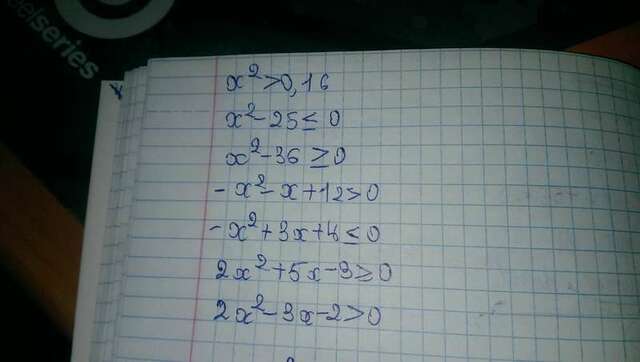 eelseries
x² > 0,16
x² - 25 ≤ 0
x² - 36 ≥ 0
- x² - x + 12 > 0
- x² + 3x + 4 ≤ 0
2x² + 5x - 3 ≥ 0
2x² - 3x - 2 > 0